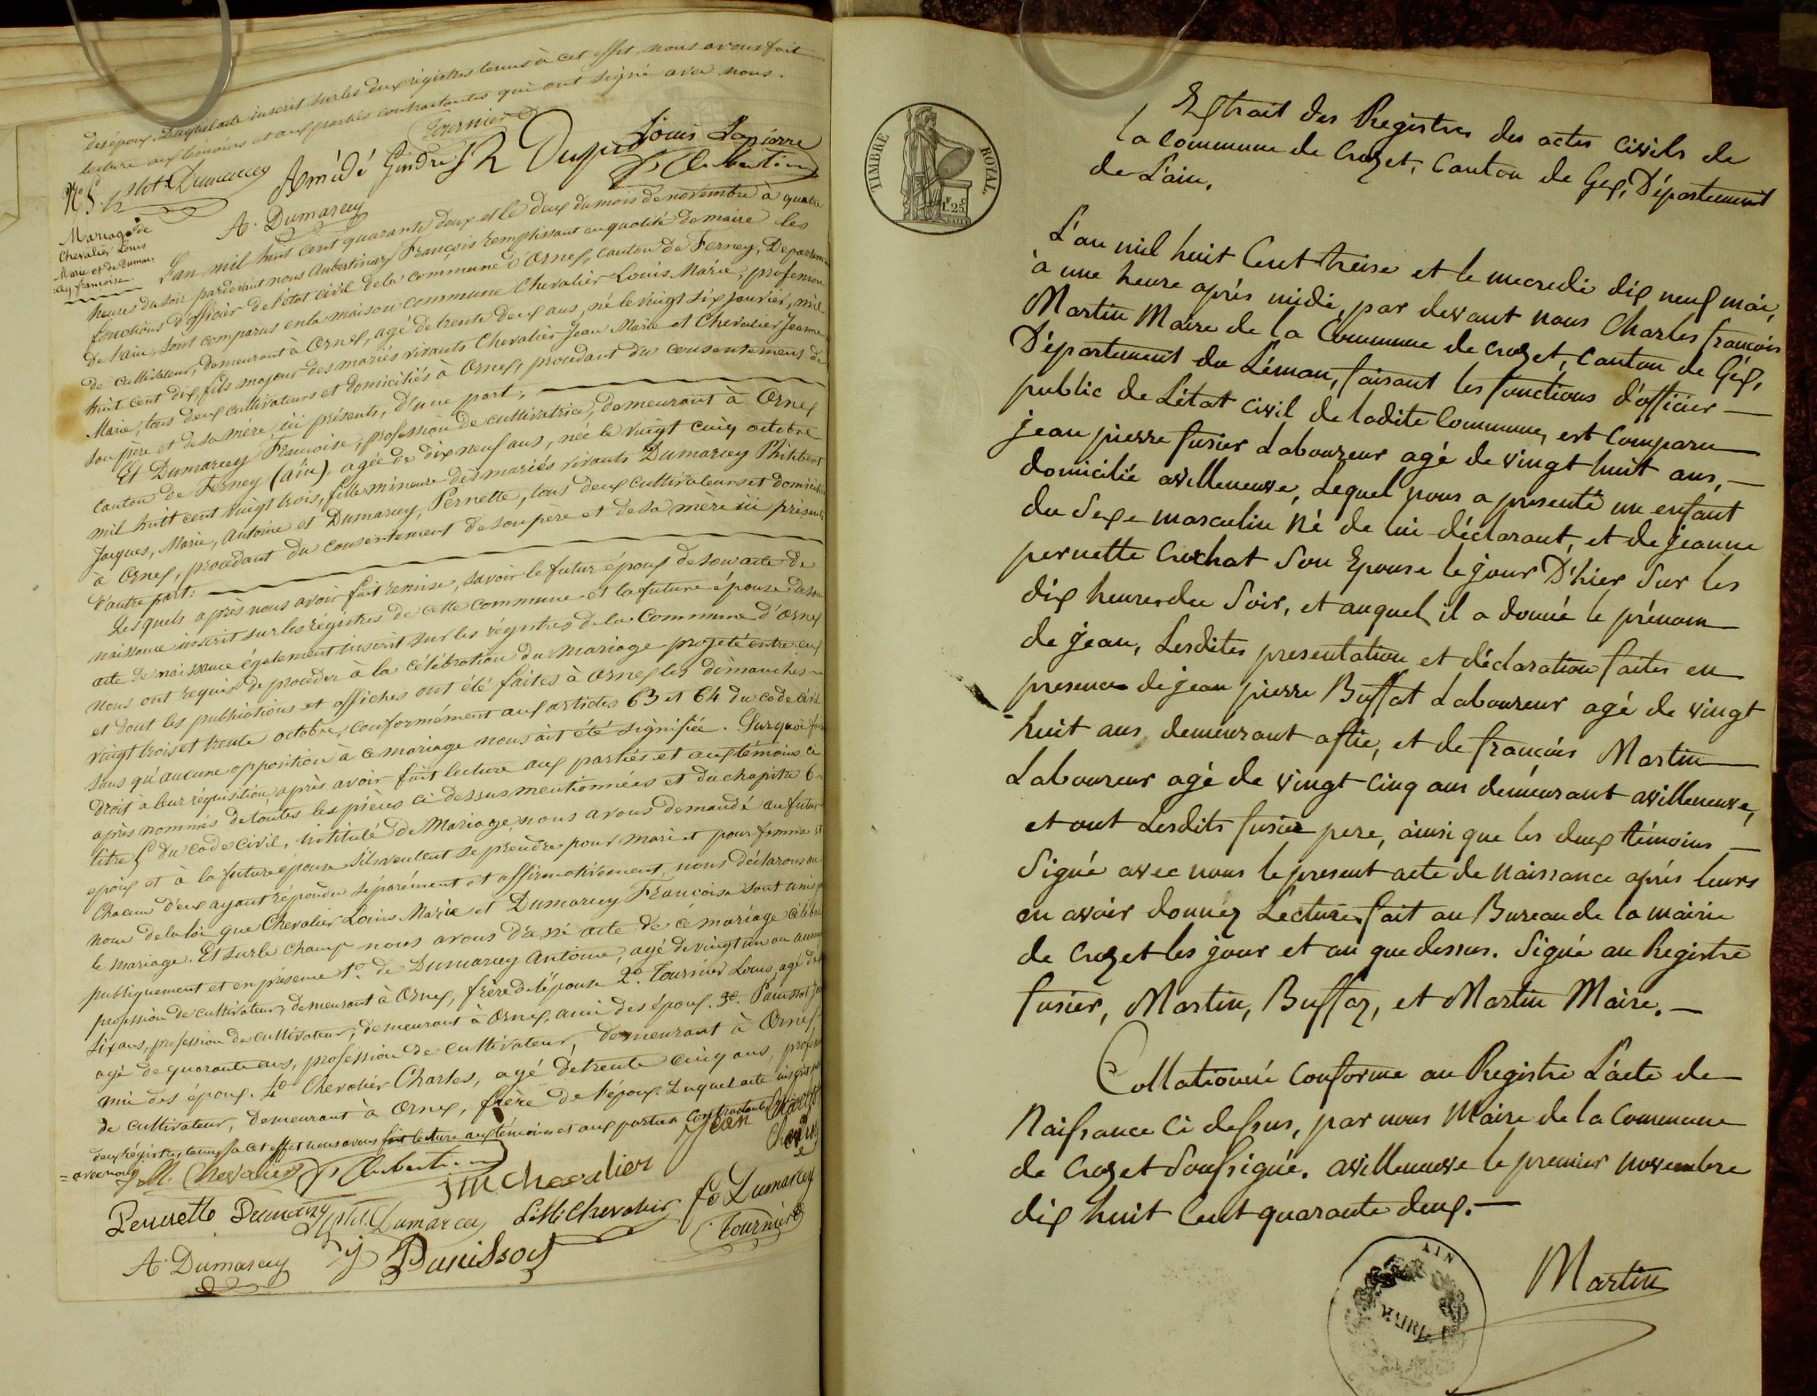 des époux. Duquel acte inscrit sur les deux régistres tenus à cet effet, nous avons fait
lecture aux témoins et aux parties contractantes qui ont signé avec nous.
Tournier
Louis Lapierre
Amédé Gindre
Dumarcey
A. Dumarcey
N° 5.
Mariage de
Chevalier, Louis
Marie et de Dumar-
cey françoise
L'an mil huit cent quarante deux et le deux du mois de novembre à quatre
heures du soir pardevant nous Aubertin François remplissant en qualité de maire les
fonctions d'officier de l'état civil de la commune d'Ornex, canton de Ferney, Département
de l'ain, sont comparus en la maison commune Chevalier Louis Marie, profession
de cultivateur, demeurant à Ornex, agé de trente deux ans, né le vingt six janvier, mil
huit cent dix, fils majeur des mariés vivants Chevalier Jean Marie et Chevalier Jeanne
Marie, tous deux cultivateurs et domiciliés à Ornex, procédant du consentement de
son père et de sa mère ici présents, d'une part,
Et Dumarcey Françoise, profession de cultivatrice, demeurant à Ornex
canton de Ferney (ain) agée de dix neuf ans, née le vingt cinq octobre
mil huit cent vingt trois, fille mineure des mariés vivants Dumarcey Philibert
Jacques, Marie, Antoine et Dumarcey, Pernette, tous deux cultivateurs et domiciliés
à Ornex, procédant du consentement de son père et de sa mère ici présents
d'autre part:
Lesquels après nous avoir fait remise, savoir le futur époux de son acte de
naissance inscrit sur les registres de cette commune et la future épouse de son
acte de naissance également inscrit sur les régistres de la Commune d'Ornex
nous ont requis de procéder à la célébration du mariage projeté entre eux
et dont les publications et affiches ont été faites à Ornex les dimanches
vingt trois et trente octobre, conformément aux articles 63 et 64 du code civil
sans qu'aucune opposition à ce mariage nous ait été signifiée. Sur quoi
droit à leur réquisition, après avoir fait lecture aux parties et aux témoins ci
après nommés de toutes les pièces ci dessus mentionnées et du chapitre 6
titre 5 du code civil, intitulé de Mariage, nous avons demandé au futur
époux et à la future épouse s'ils veulent se prendre pour mari et pour femme et
chacun d'eux ayant répondu séparément et affirmativement, nous déclarons au
nom de la loi que Chevalier Louis Marie et Dumarcey Françoise sont unis
le mariage. Et sur le champ nous avons dressé acte de ce mariage célébré
publiquement et en présence 1° de Dumarcey Antoine, agé de vingt un an
profession de cultivateur, demeurant à Ornex, frère de l'épouse 2° Tournier Louis, agé de
six ans, profession de cultivateur, demeurant à Ornex, ami des époux. 3° Panissod
agé de quarante ans, profession de cultivateur, demeurant à Ornex
ami des époux. 4° Chevalier Charles, agé de trente cinq ans, profession
de cultivateur, demeurant à Ornex, frère de l'époux. Duquel acte inscrit
deux régistres tenus à cet effet nous avons fait lecture aux témoins et aux parties contractantes
avec nous
J M. Chevalier
J M Chevalier
Pernette Dumarcey
Dumarcey
L. M Chevalier
fs Dumarcey
Tournier
A. Dumarcey
Panissod
TIMBRE ROYAL
F. C.
1.25
Extrait des Registres des actes civils de
la commune de Crozet, Canton de Gex, Département
de L'ain.
L'an mil huit Cent treise et le mecredi dix neuf mai,
à une heure après midi, par devant nous Charles françois
Martin Maire de la Commune de crozet, canton de Géx,
Département du Léman, faisant les fonctions d'officier —
public de L'état civil de ladite Commune, est Comparu —
jean pierre fusier Laboureur agé de vingt huit ans, —
domicilié avilleneuve, Lequel nous a présenté un enfant
du Sexe masculin né de lui déclarant, et de jeanne
pernette Crochat son Epouse le jour D'hier Sur les
dix heures du Soir, et auquel il a donné le prénom
de jean, Lesdites presentation et déclaration faites en
presence de jean pierre Buffat Laboureur agé de vingt
huit ans, demeurant aflie, et de françois Martin
Laboureur agé de vingt cinq ans demeurant avilleneuve,
et ont Lesdits fusier pere, ainsi que les deux témoins —
Signé avec nous le present acte de Naissance après leurs
en avoir donnéz Lecture, fait au Bureau de la mairie
de Crozet les jour et an que dessus. Signé au Registre
fusier, Martin, Buffaz, et Martin Maire. —
Collationné Conforme au Registre L'acte de
Naissance Ci dessus, par nous Maire de la Commune
de Crozet Soussigné. avilleneuve le premier novembre
dix huit Cent quarante deux. —
Martin
AIN
MAIRIE